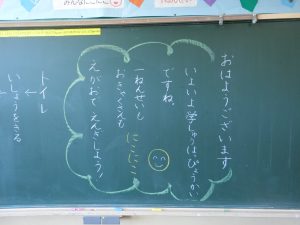 おはようございます
いよいよ学しゅうはっぴょうかい
ですね。
一ねんせいも
おきゃくさんも
にこにこ
えがおで えんぎしよう!
トイレ
↓
いしょうをきる
↓